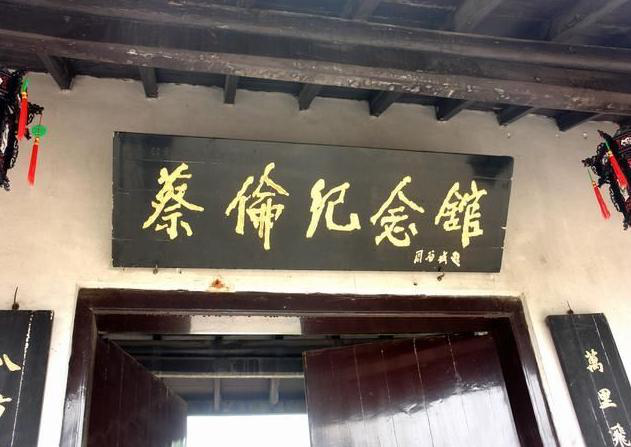 蔡倫纪念舘
周谷城題
八方
萬里飛